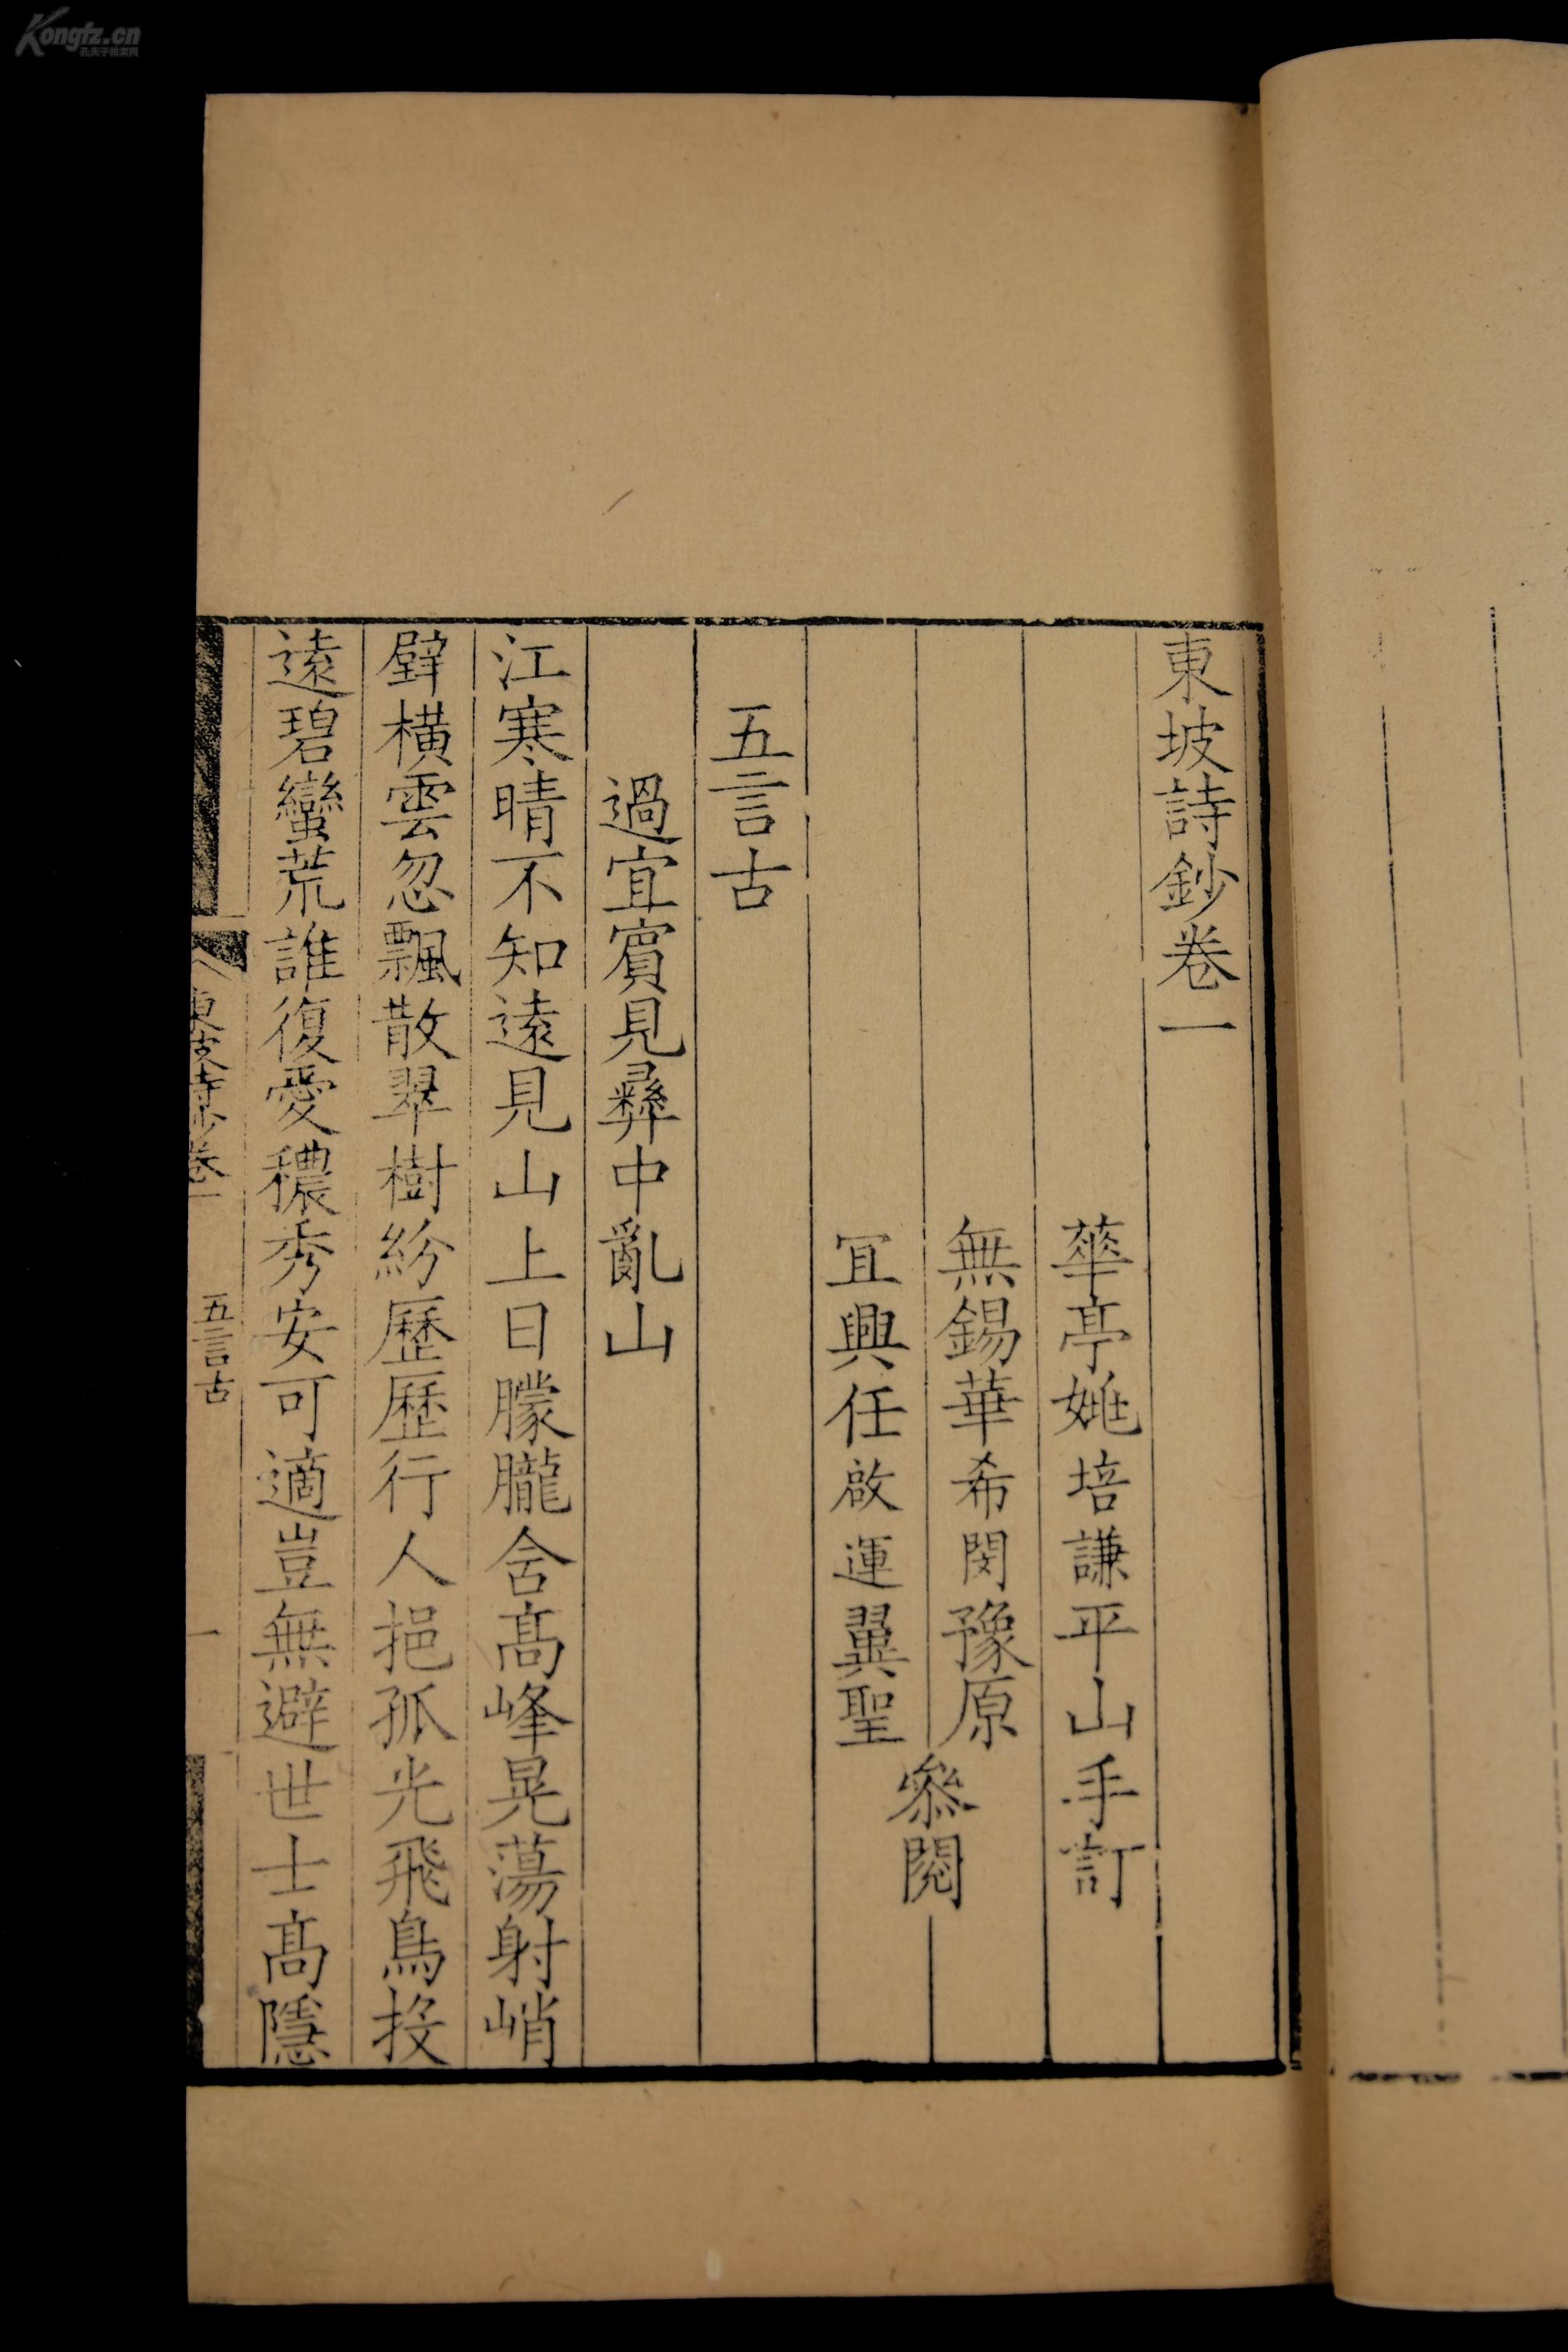 東坡詩鈔卷一
華亭姚培謙平山手訂
無錫華希閔豫原
宜興任啟運翼聖
叅閱
五言古
過宜賓見彝中亂山
江寒晴不知遠見山上日朦朧含高峰晃蕩射峭
壁橫雲忽飄散翠樹紛歷歷行人挹孤光飛鳥投
遠碧蠻荒誰復愛穠秀安可適豈無避世士高隱
東坡詩鈔卷一
五言古
一
Kongfz.cn
孔夫子拍卖网